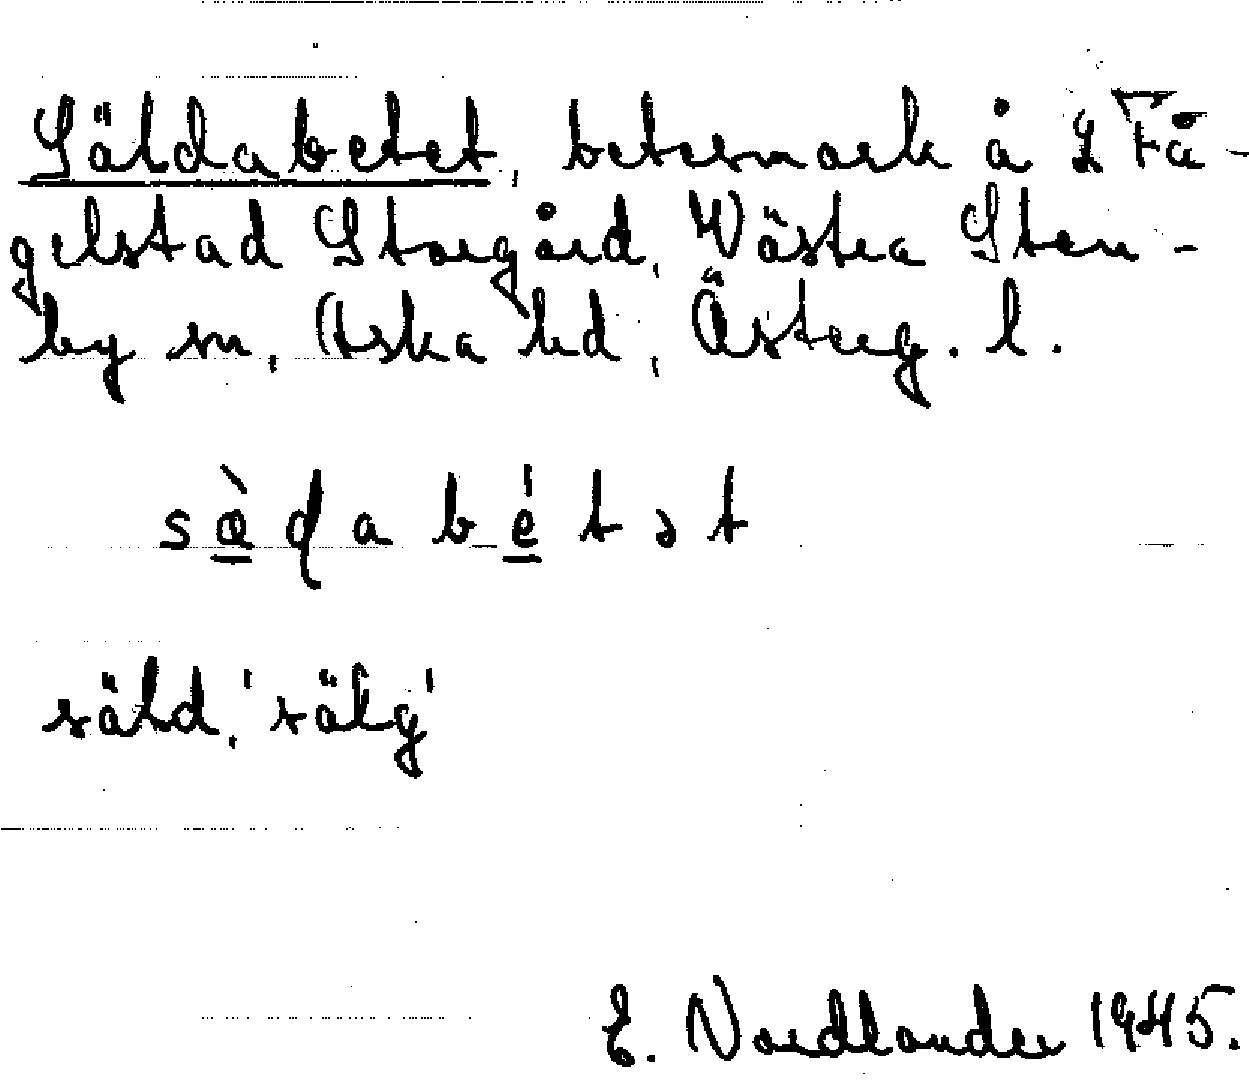 Säldabetet, betesmark å 2 Få-
gelstad Storgård, Västra Sten-
by sn, Aska hd, Österg. l.
sæ̀ḍabétət
säld, 'sälg'
E. Nordlander 1945.